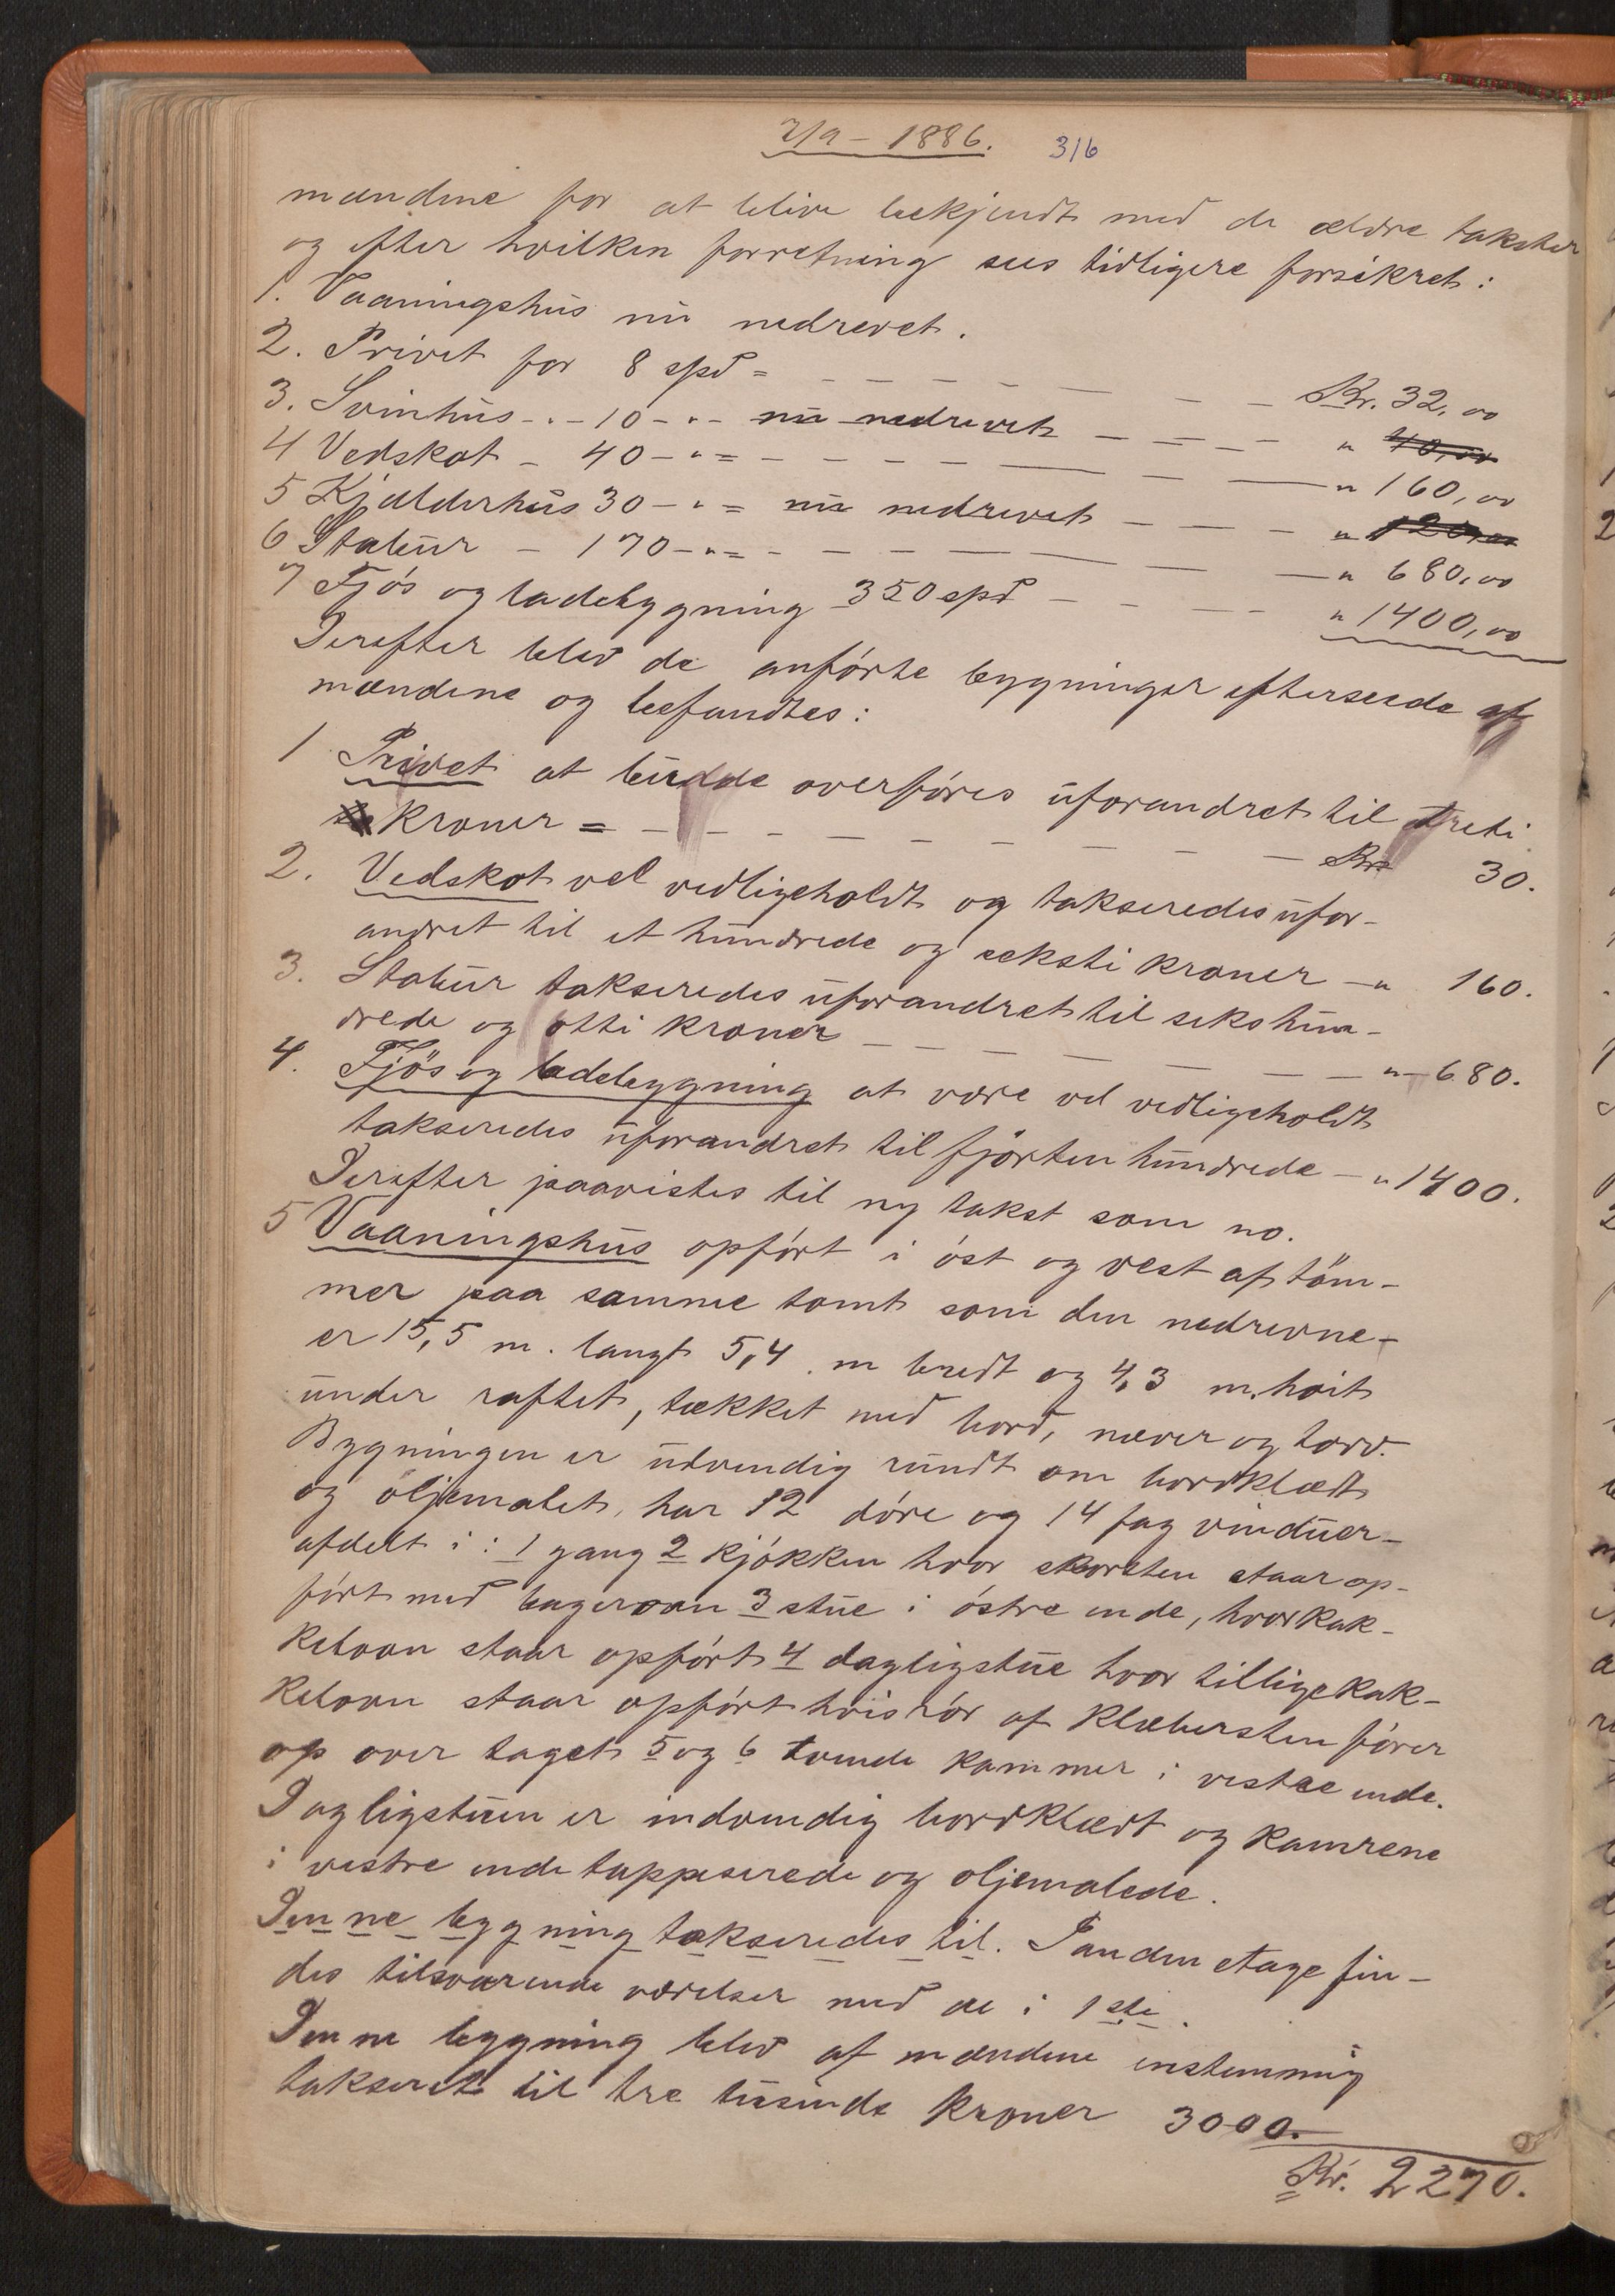 2/9 – 1886. 316
mændene for at blive bekjendt med de ældre takster
og efter hvilken forretning sees tidligere forsikret:
1. Vaaningshus nu nedrevet.
2. Privet for 8 spd = – – – – – – – Kr. 32,00
3. Svinhus – " – 10 – " – nu nedrevet – – – – " 40,00
4 Vedskot – 40 – " = – – – – – – – " 160,00
5 Kjælderhus 30 – " = nu nedrevet – – – – " 120,00
6 Stabur – 170 – " = – – – – – – – " 680,00
7 Fjós og ladebygning 350 spd – – – – " 1400,00
Derefter blev de anførte bygninger efterseede af
mændene og befandtes:
1 Privet at burde overføres uforandret til treti
kroner = – – – – – – – – Kr 30.
2. Vedskot vel vedligeholdt og takseredes ufor-
andret til et hundrede og seksti kroner – " 160.
3. Stabur takseredes uforandret til sekshun-
drede og otti kroner – – – – – – – " – 680.
4. Fjös og ladebygning at være vel vedligeholdt
takseredes uforandret til fjörten hundrede – " 1400.
Derefter paavistes til ny takst som no.
5 Vaaningshus opfórt i óst og vest af töm-
mer paa samme tomt som den nedrevne –
er 15,5 m. langt 5,4 m bredt og 4,3 m. høit
under raftet, tækket med bord, næver og torv.
Bygningen er udvendig rundt om bordklædt
og oljemalet, har 12 döre og 14 fag vinduer –
afdelt i: 1 gang 2 kjókken hvor skorsten staar op-
fórt med bagerovn 3 stue i óstre ende, hvor kak-
kelovn staar opfórt 4 dagligstue hvor tillige kak-
kelovn staar opfórt hvis rór af klæbersten fórer
op over taget 5 og 6 tvende kammer i vestre ende.
Dagligstuen er indvendig bordklædt og kamrene
i vestre ende tappeserede og oljemalede.
Denne bygning takseredes til. I anden etage fin-
des tilsvarende værelser med de i 1ste.
Denne bygning blev af mændene enstemmig
takseret til tre tusinde kroner 3000.
Kr. 2270.